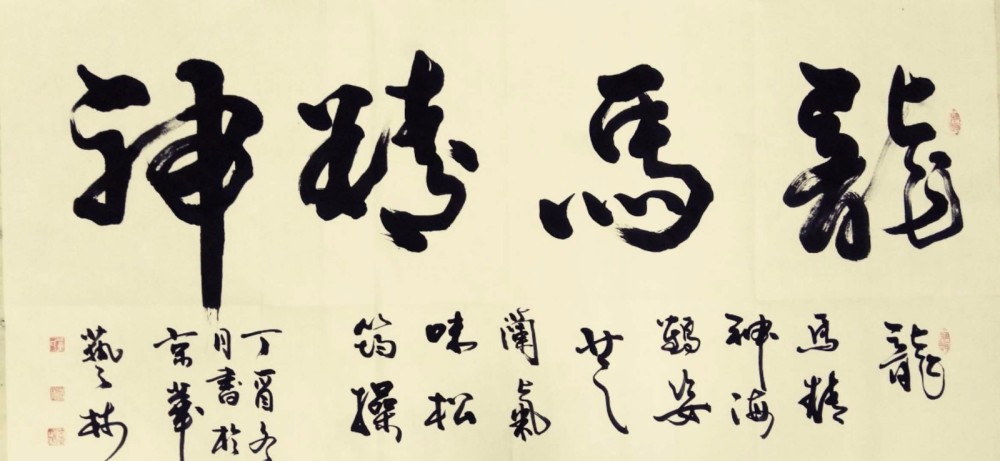 龍馬精神
龍
馬精
神海
鶴姿
芝
蘭氣
味松
筠操
丁酉冬
月書於
京華